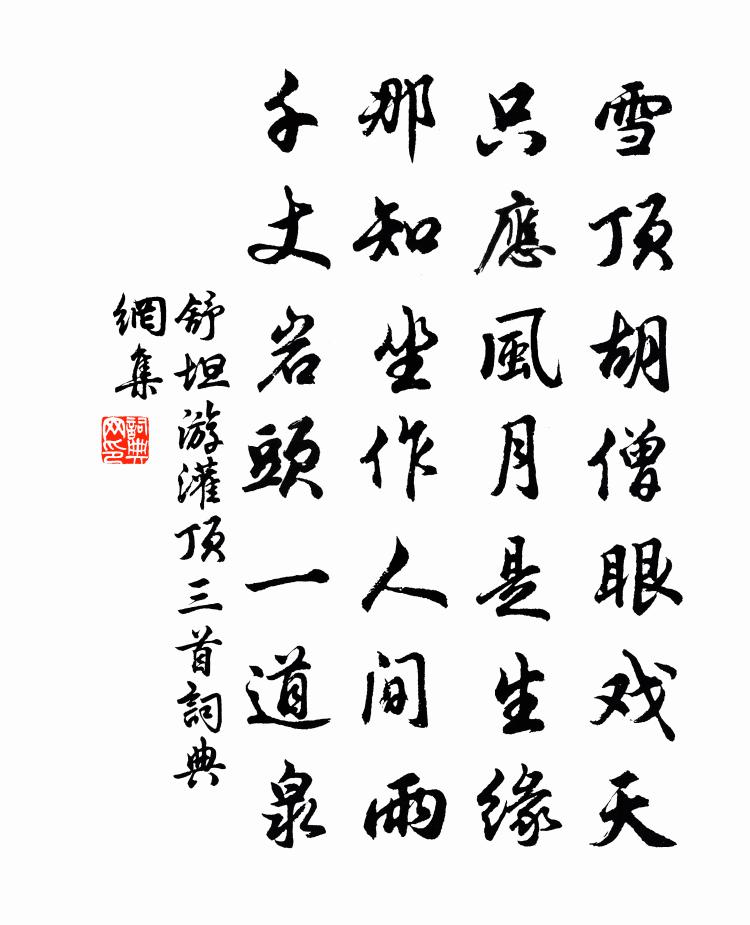 雪顶胡僧眼戏天
只應風月是生緣
那知坐作人间雨
千丈岩頭一道泉
舒坦游灌顶三首詞典
網集
詞典
网印